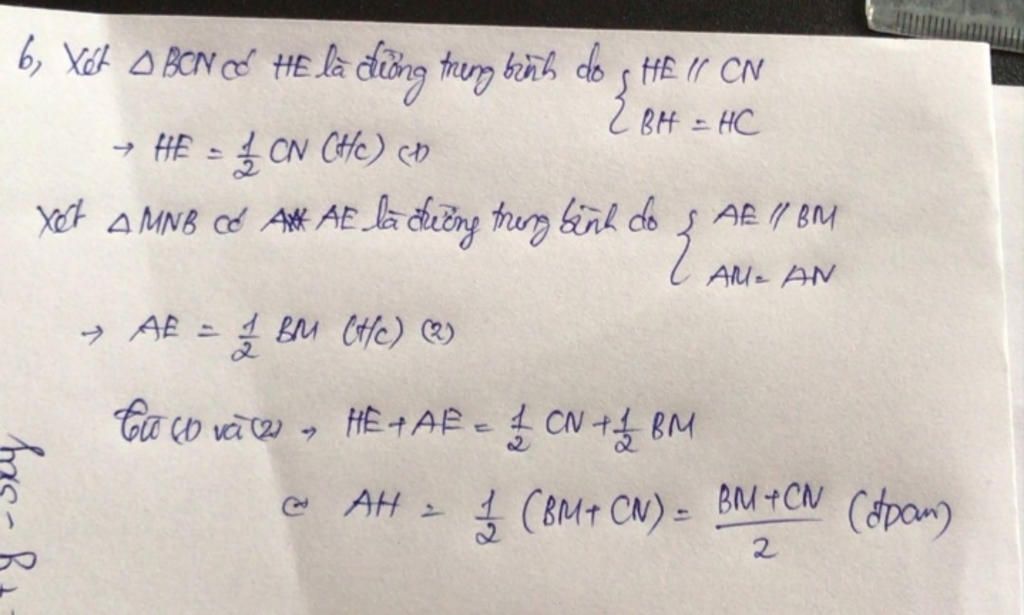 b, Xét △BCN có HE là đường trung bình do { HE // CN
BH = HC
→ HE = 1/2 CN (t/c) (1)
Xét △MNB có AE là đường trung bình do { AE // BM
AM = AN
→ AE = 1/2 BM (t/c) (2)
Từ (1) và (2) → HE + AE = 1/2 CN + 1/2 BM
AH = 1/2 (BM + CN) = BM + CN / 2 (đpcm)